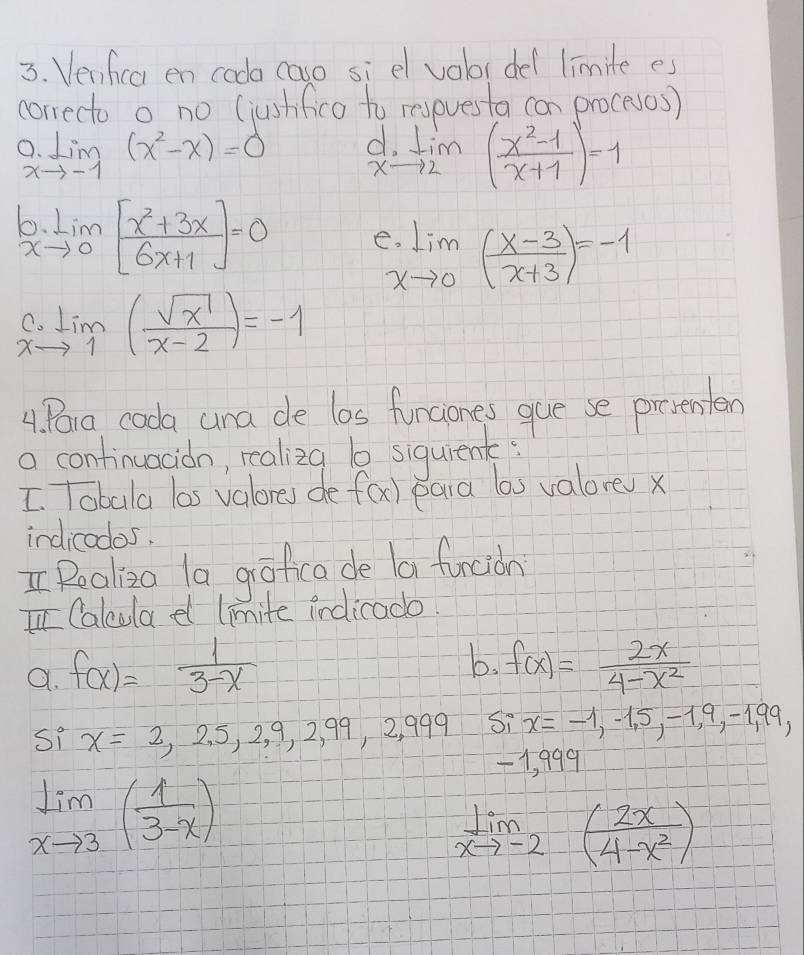 3. Verifica en cada caso si el valor del límite es
correcto o no (justifica tu respuesta con procesos)
a. Lim x→-1 (x²-x)=0
d. Lim x→2 (x²-1/x+1)=1
b. Lim x→0 [x²+3x/6x+1]=0
e. Lim x→0 (x-3/x+3)=-1
c. Lim x→1 (√x/x-2)=-1
4. Para cada una de las funciones que se presentan
a continuación, realiza lo siguiente:
I. Tabula los valores de f(x) para los valores x
indicados.
II Realiza la gráfica de la función
III Calcula el límite indicado.
a. f(x)= 1/3-x
b. f(x)= 2x/4-x²
si x= 2, 2,5, 2,9, 2,99, 2,999
Si x= -1, -1,5, -1,9, -1,99,
-1,999
Lim x→3 (1/3-x)
Lim x→-2 (2x/4-x²)